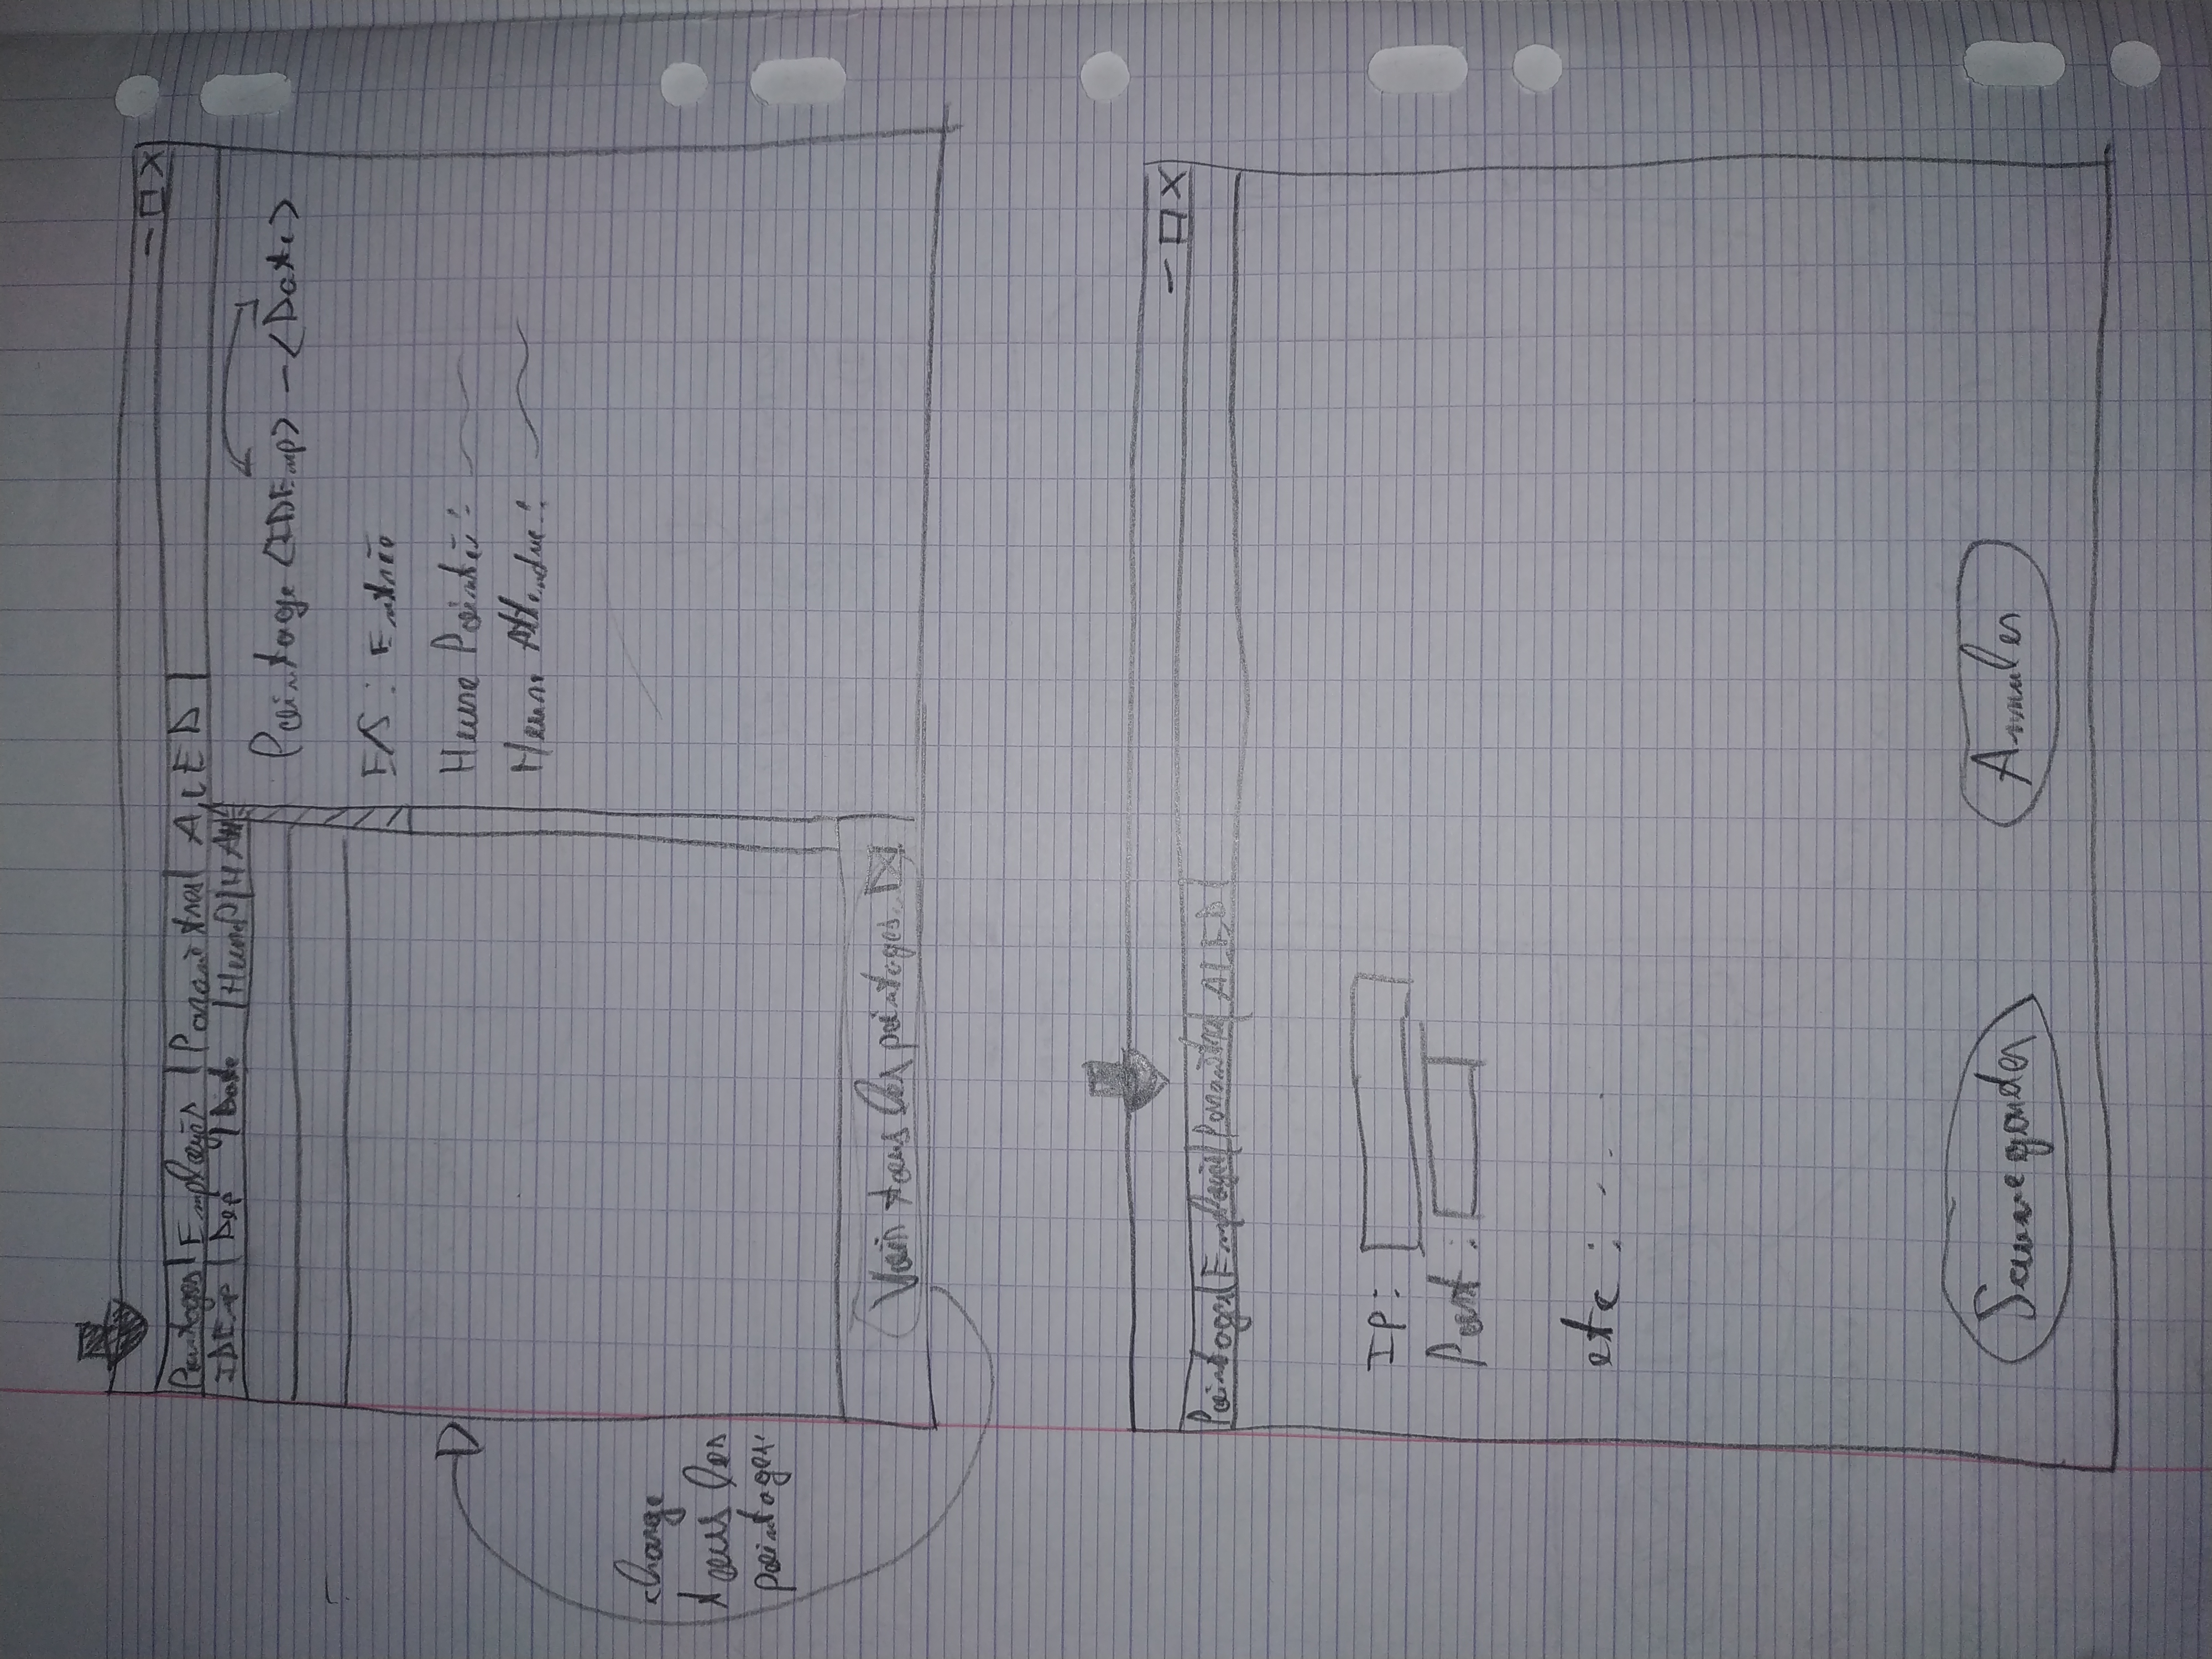 Pointages Employés Paramètres ALED
IDEmp Dep Date HeureP H Att
Pointage <IDEmp> - <Date>
E/S : Entrée
Heure Pointée :
Heure Attendue :
charge
tous les
pointages
Voir tous les pointages
Pointages Employés Paramètres ALED
Ip :
Port :
etc : ...
Sauvegarder Annuler